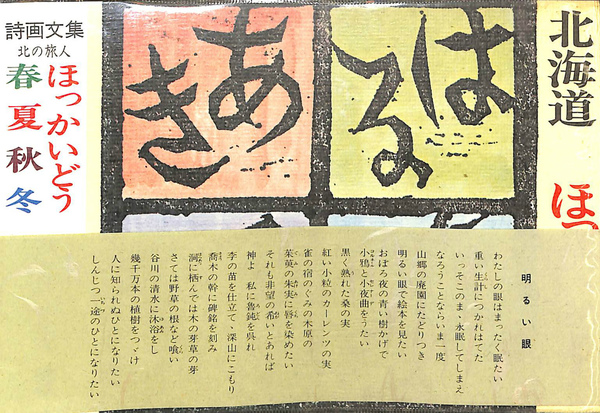 北海道
ほっ
はる
あき
詩画文集
北の旅人
ほっかいどう
春夏秋冬
明るい眼
わたしの眼はまったく眠たい
重い生計につかれはてた
いっそこのまゝ永眠してしまえ
なろうことならいま一度
山郷の廃園にたどりつき
明るい眼で絵本を見たい
おぼろ夜の青い樹かげで
小鴉と小夜曲をうたい
黒く熟れた桑の実
紅い小粒のカーレンツの実
雀の宿のぐみの木原の
茱萸の朱実に唇を染めたい
それも非望の希いとあれば
神よ 私に魯鈍を呉れ
李の苗を仕立て、深山にこもり
喬木の幹に碑銘を刻み
洞に栖んでは木の芽草の芽
さては野草の根など喰い
谷川の清水に沐浴をし
幾千万本の植樹をつゞけ
人に知られぬひとになりたい
しんじつ一途のひとになりたい